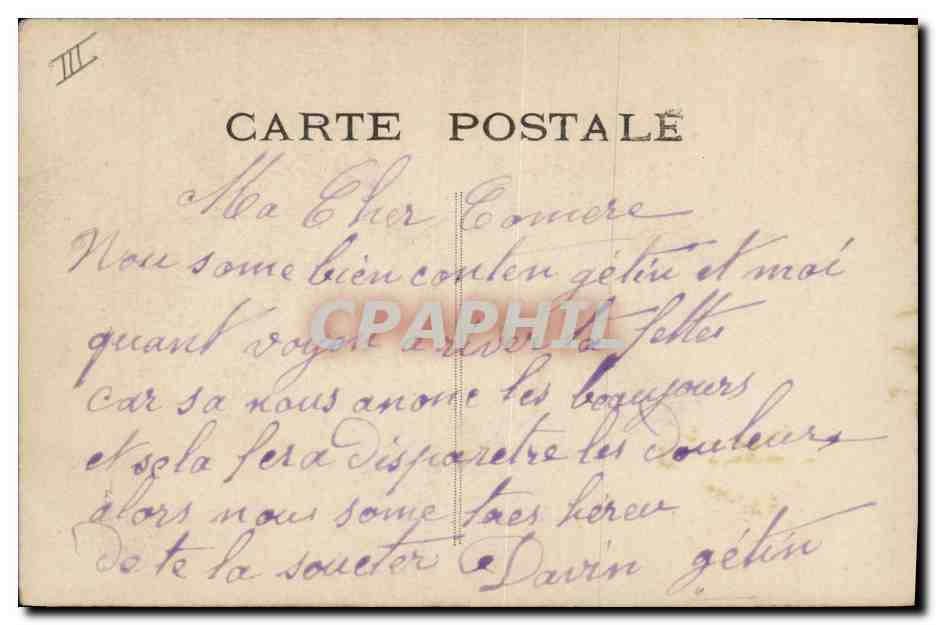 III
CARTE POSTALE
Ma Cher Comere
Nou some bien conten gétin et moi
quant voyon ariver la fette
car sa nous anonc les beaujours
et sela fera disparetre les douleurs
alors nous some tres héreu
de te la soueter Davin gétin
CPAPHIL